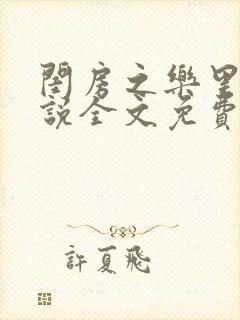 閨房之樂里
說全文免費
許夏飛